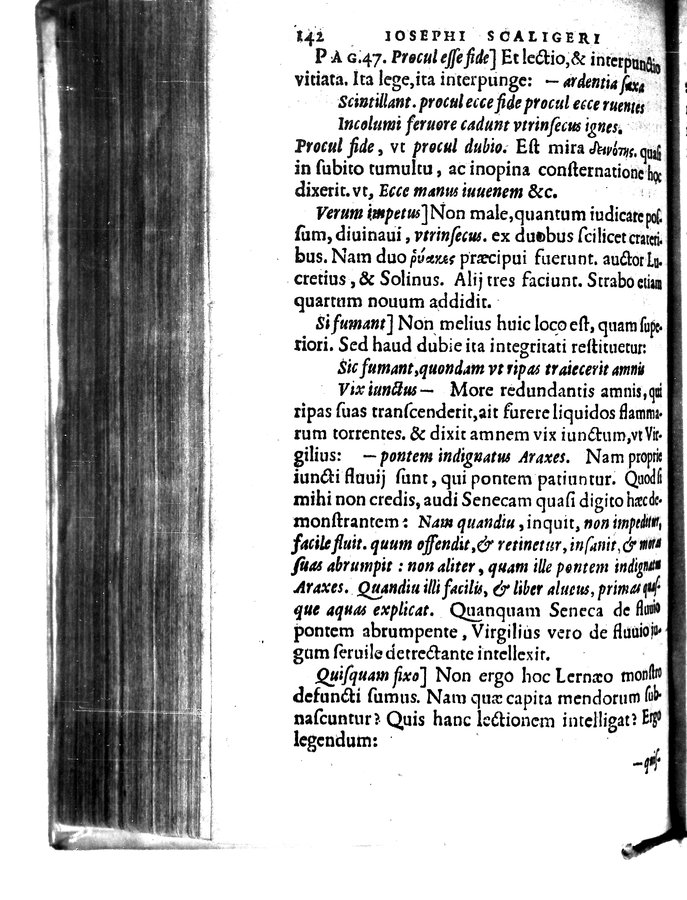 142 IOSEPHI SCALIGERI
PAG.47. Procul eſſe fide] Et lectio, & interpunctio
vitiata. Ita lege, ita interpunge: — ardentia ſaxa
Scintillant. procul ecce fide procul ecce ruentes
Incolumi feruore cadunt vtrinſecus ignes.
Procul fide, vt procul dubio. Eſt mira δεινότης. quaſi
in ſubito tumultu, ac inopina conſternatione hoc
dixerit. vt, Ecce manus iuuenem &c.
Verum impetus] Non male, quantum iudicare poſ-
ſum, diuinaui, vtrinſecus. ex duobus ſcilicet crateri-
bus. Nam duo ῥύακες præcipui fuerunt. auctor Lu-
cretius, & Solinus. Alij tres faciunt. Strabo etiam
quartum nouum addidit.
Si fumant] Non melius huic loco eſt, quam ſupe-
riori. Sed haud dubie ita integritati reſtituetur:
Sic fumant, quondam vt ripas traiecerit amnis
Vix iunctus — More redundantis amnis, qui
ripas ſuas tranſcenderit, ait furere liquidos flamma-
rum torrentes. & dixit amnem vix iunctum, vt Vir-
gilius: — pontem indignatus Araxes. Nam proprie
iuncti fluuij ſunt, qui pontem patiuntur. Quod ſi
mihi non credis, audi Senecam quaſi digito hæc de-
monſtrantem: Nam quandiu, inquit, non impeditur,
facile fluit. quum offendit, & retinetur, inſanit, & mora
ſuas abrumpit: non aliter, quam ille pontem indignatus
Araxes. Quandiu illi facilis, & liber alueus, primas quaſ-
que aquas explicat. Quanquam Seneca de fluuio
pontem abrumpente, Virgilius vero de fluuio iu-
gum ſeruile detrectante intellexit.
Quiſquam fixo] Non ergo hoc Lernæo monſtro
defuncti ſumus. Nam quæ capita mendorum ſub-
naſcuntur? Quis hanc lectionem intelligat? Ergo
legendum:
—quiſ-